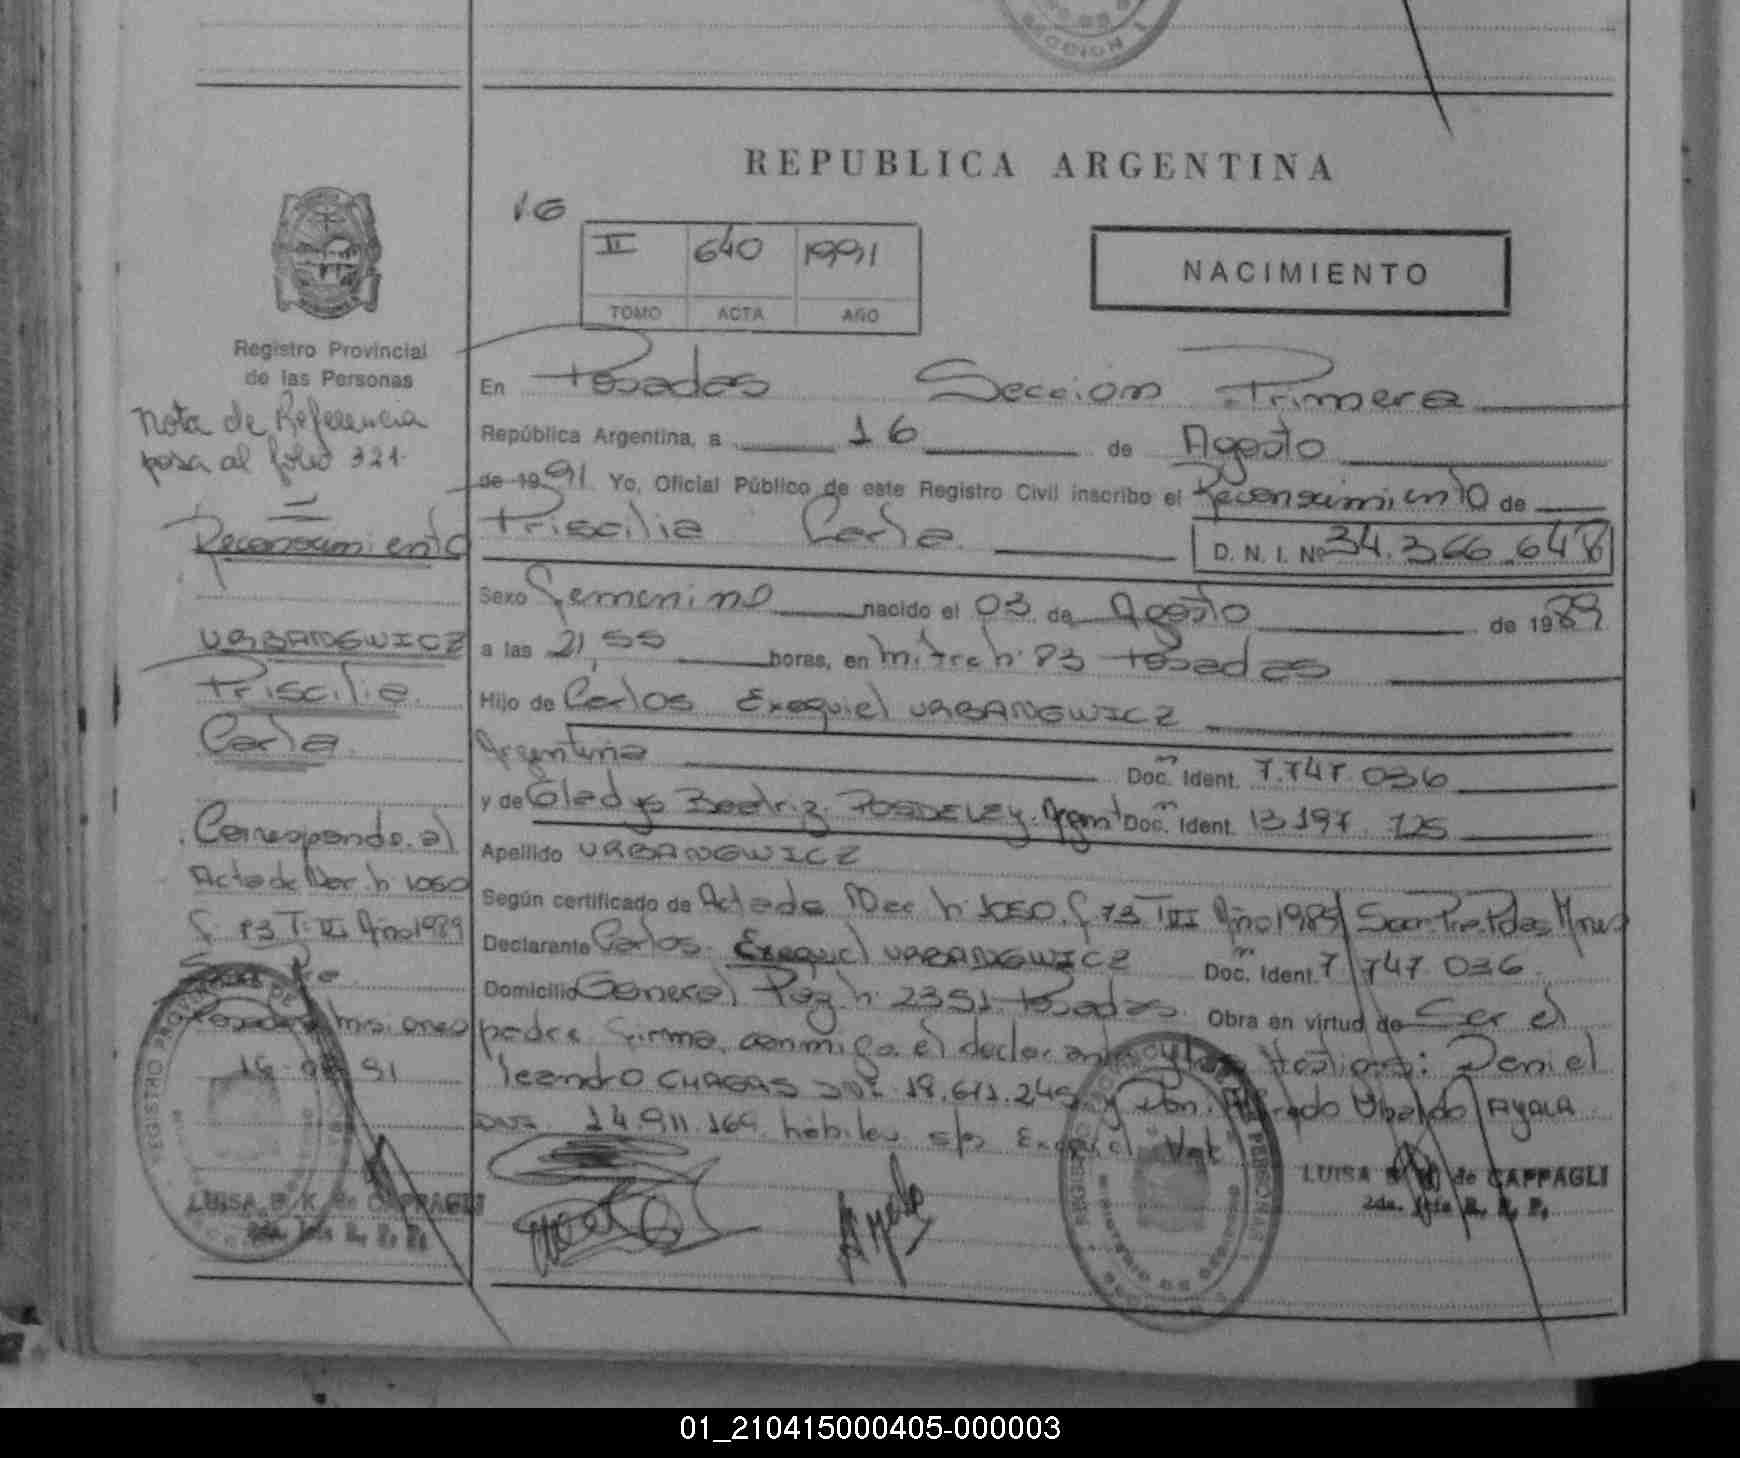 REPUBLICA ARGENTINA
16
II 640 1991
TOMO ACTA AÑO
NACIMIENTO
Registro Provincial
de las Personas
Nota de Referencia
pasa al folio 321.
Reconosimiento
URBANGWICZ
Priscilia
Carla.
Corresponde al
Acta de Nac. n: 1050
F. 73 T. III Año 1989
Posadas Misiones
LUISA B. K. de CAPPAGLI
2da. R. P. P.
En Posadas Sección Primera
República Argentina, a 16 de Agosto
de 1991 Yo, Oficial Público de este Registro Civil inscribo el Reconosimiento de
Priscilia Carla. D. N. I. Nº 34.366.648
Sexo Femenino nacido el 03 de Agosto de 1989
a las 21,55 horas, en Mitre n: 83 Posadas
Hijo de Carlos Exequiel URBANGWICZ
Argentina Doc. Ident. 7.747.036
y de Gladys Beatriz POSDELEY. Argent Doc. Ident. 13 197. 725
Apellido URBANGWICZ
Según certificado de Acta de Nac n: 1050. F 73 T III Año 1989 Secc. Pra. Pdas Mnes
Declarante Carlos Exequiel URBANGWICZ Doc. Ident. 7.747.036.
Domicilio General Paz n: 2351 Posadas. Obra en virtud de Ser el
padre Firma conmigo el declarante y los testigos: Daniel
leandro CHAGAS DNI. 18.611.245 y Don. Alfredo Ubaldo AYALA
DNI 14.911.169. habiles
LUISA de CAPPAGLI
2da. R. P. P.
01_210415000405-000003